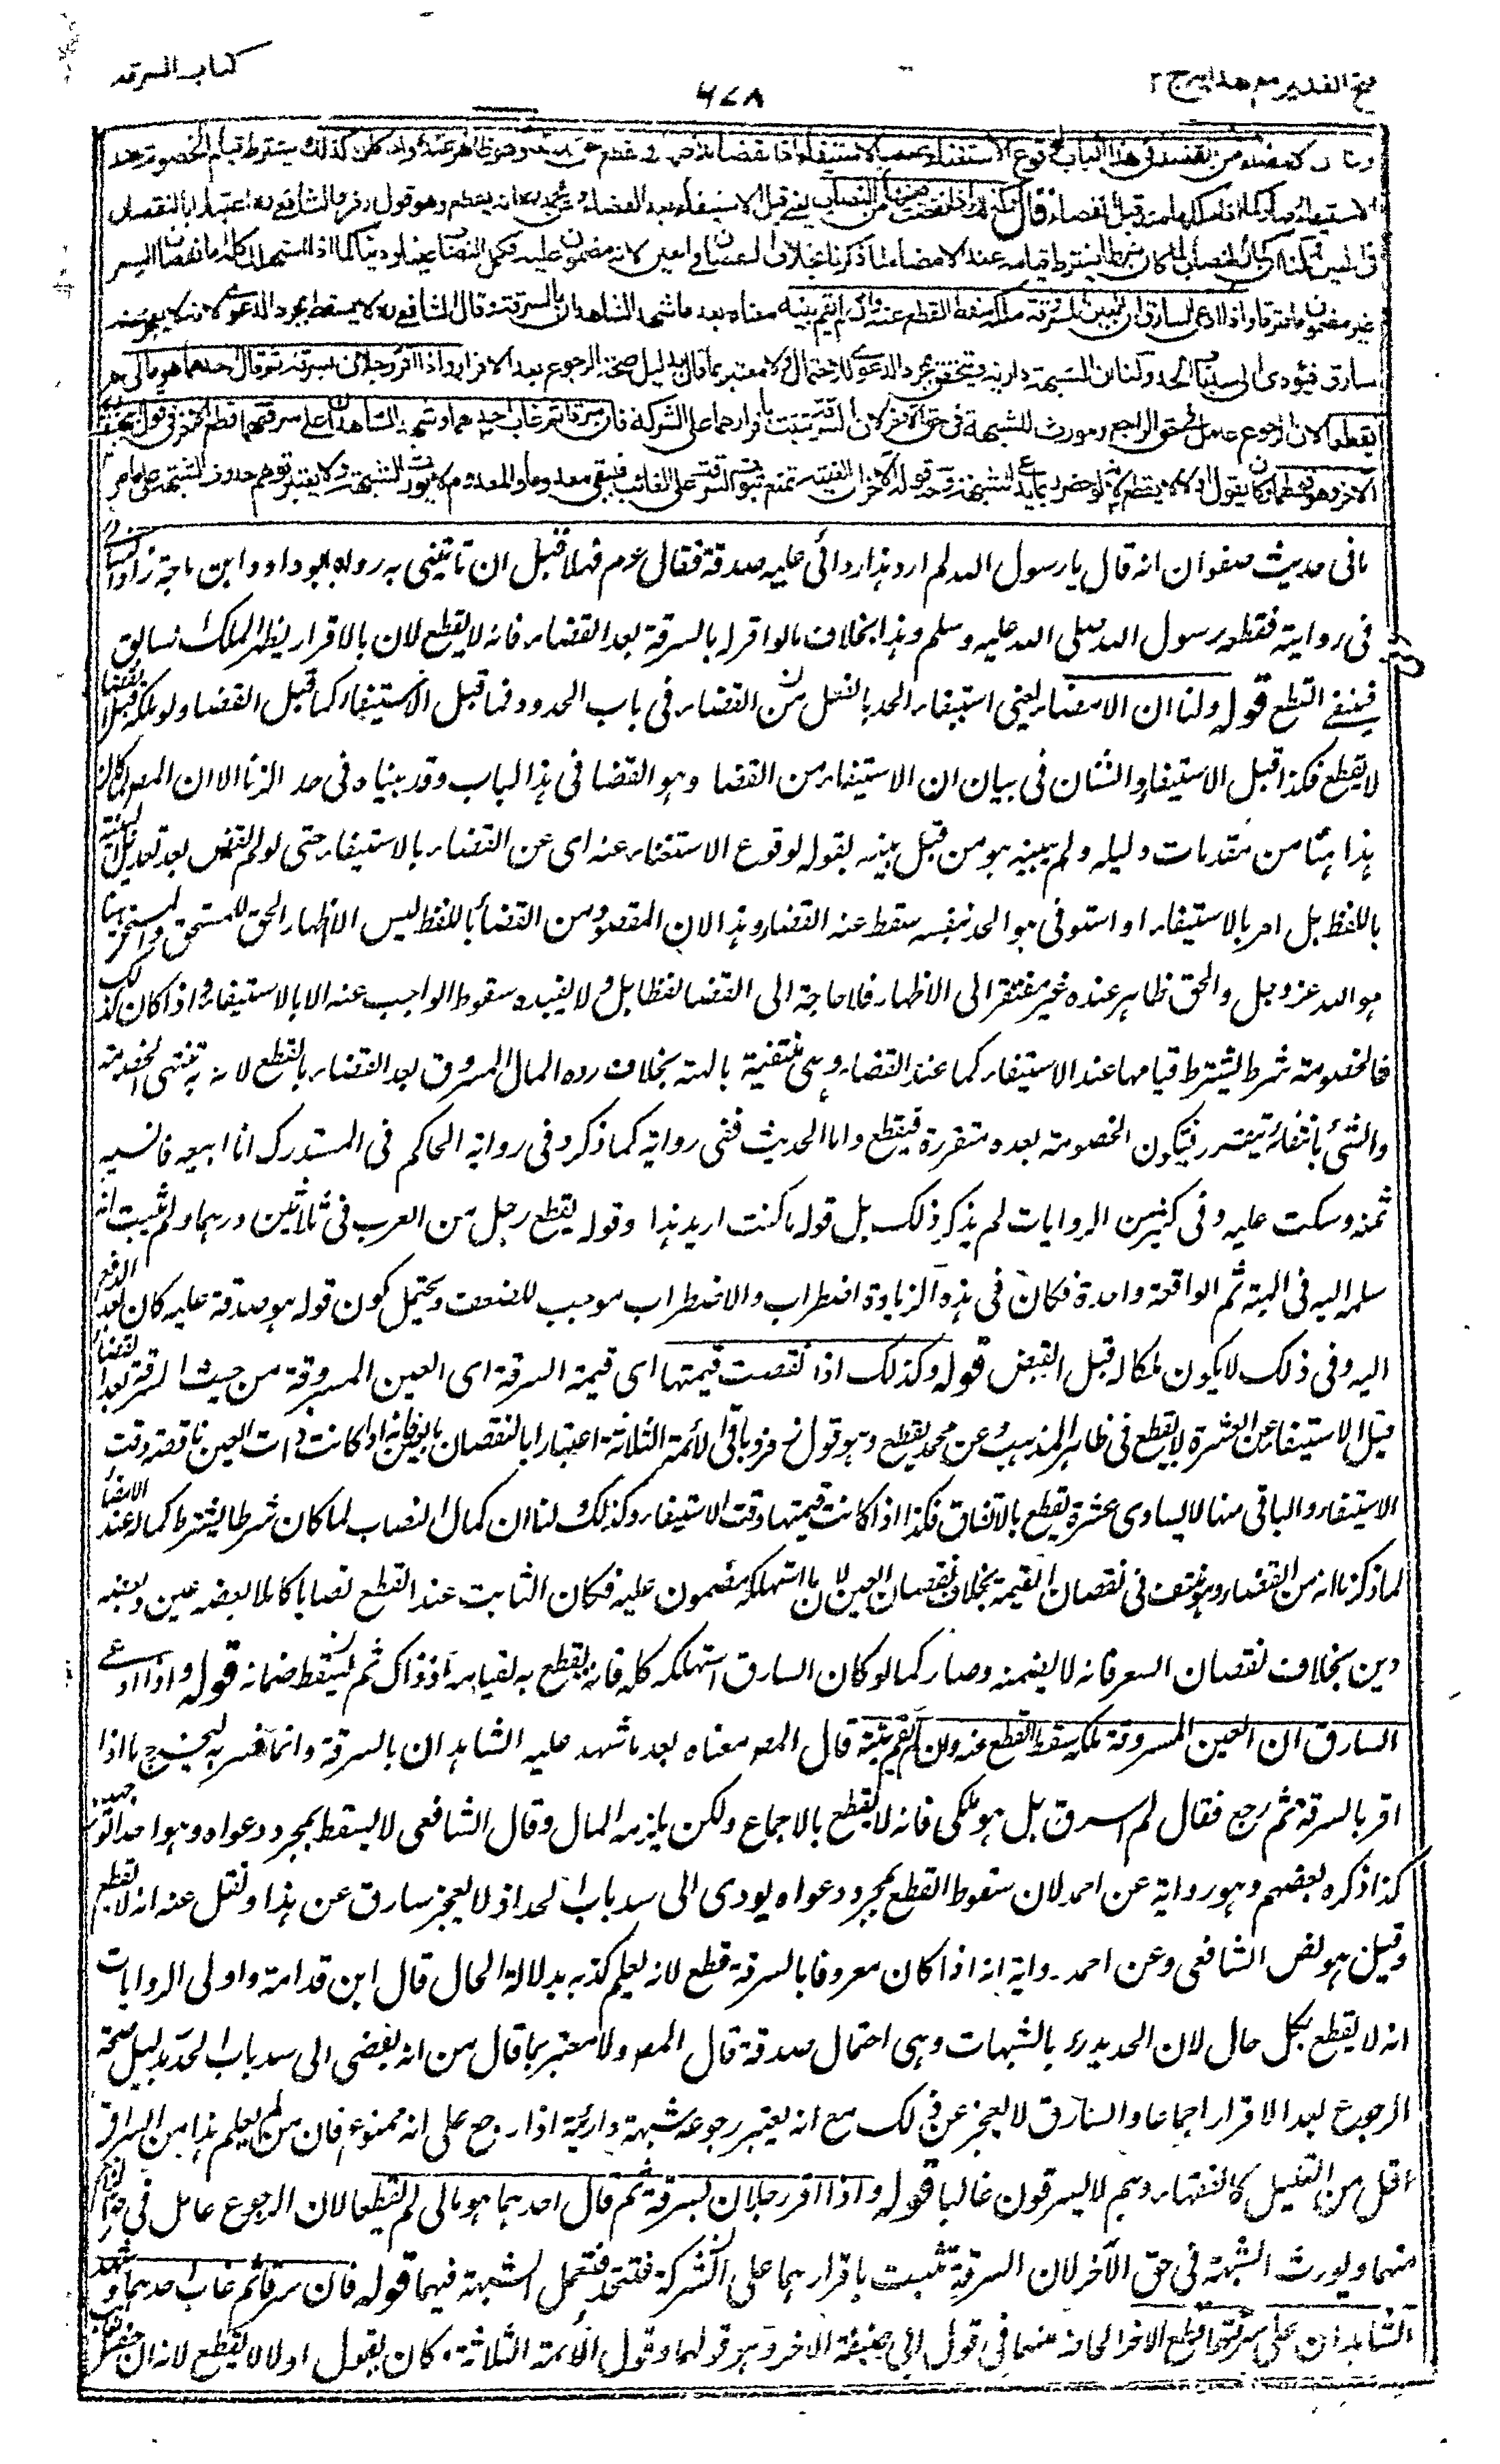 كتاب السرقة
٦٧٨
فتح القدير مع هداية ج ٢
ولنا ان الامضاء من القضاء في هذا الباب لوقوع الاستغناء عنه بالاستيفاء اذا القضاء للاظهار والقطع حق الله تعالى وهو ظاهر عنده واذا كان كذلك يشترط قيام الخصومة عند
الاستيفاء وصار كما اذا ملكها منه قبل القضاء قال وكذلك اذا نقصت قيمتها من النصاب يعني قبل الاستيفاء بعد القضاء وعن محمد رح انه يقطع وهو قول زفر والشافعي رح اعتبارا بالنقصان
في العين ولنا ان كمال النصاب لما كان شرطا يشترط قيامه عند الامضاء لما ذكرنا بخلاف النقصان في العين لانه مضمون عليه فكمل النصاب عينا ودينا كما اذا استهلك كله اما نقصان السعر
غير مضمون فافترقا واذا ادعى السارق ان العين المسروقة ملكه سقط القطع عنه وان لم يقم بينة معناه بعد ما شهد الشاهدان بالسرقة وقال الشافعي رح لا يسقط بمجرد الدعوى لانه لا يعجز عنه
سارق فيؤدى الى سد باب الحد ولنا ان الشبهة دارئة ويتحقق بمجرد الدعوى للاحتمال ولا معتبر بما قال بدليل صحة الرجوع بعد الاقرار واذا اقر رجلان بسرقة ثم قال احدهما هو مالى لم
يقطعا لان الرجوع عامل في حق الراجع ومورث للشبهة في حق الآخر لان السرقة تثبت باقرارهما على الشركة فان سرقا ثم غاب احدهما وشهد الشاهدان على سرقتهما قطع الآخر في قول ابي حنيفة
الآخر وهو قولهما وكان يقول اولا لا يقطع لانه لو حضر ربما يدعى الشبهة وجه قوله الآخر ان الغيبة تمنع ثبوت السرقة على الغائب فيبقى معدوما والمعدوم لا يورث الشبهة ولا يعتبر توهم حدوث الشبهة على ما مر
ما في حديث صفوان انه قال يا رسول الله لم ارد هذا ردائي عليه صدقة فقال عم فهلا قبل ان تاتيني به رواه ابو داود وابن ماجة زاد النسائي
في رواية فقطعه رسول الله صلى الله عليه وسلم وهذا بخلاف ما لو اقر له بالسرقة بعد القضاء فانه لا يقطع لان بالاقرار يظهر الملك السابق
فينتفي القطع قوله ولنا ان الامضاء يعني استيفاء الحد بالفعل من القضاء في باب الحدود فما قبل الاستيفاء كما قبل القضاء ولو ملكه قبل القضاء
لا يقطع فكذا قبل الاستيفاء والشان في بيان ان الاستيفاء من القضا وهو القضا في هذا الباب وقد بيناه في حد الزنا الا ان المصر لما كان
هذا هنا من مقدمات دليله ولم يبينه هو من قبل بينه بقوله لوقوع الاستغناء عنه اى عن القضاء بالاستيفاء حتى لو لم يقض بعد تعديل البينة
باللفظ بل امر بالاستيفاء او استوفى هو الحد بنفسه سقط عنه القضاء وهذا لان المقصود من القضاء باللفظ ليس الا اظهار الحق للمستحق والمستحق هنا
هو الله عز وجل والحق ظاهر عنده غير مفتقر الى الاظهار فلا حاجة الى القضا لفظا بل ولا يفيده سقوط الواجب عنه الا بالاستيفاء واذا كان كذلك
فالخصومة شرط يشترط قيامها عند الاستيفاء كما عند القضاء وهى منتفية بالهبة بخلاف رده المال المسروق بعد القضاء بالقطع لانه به تنتهى الخصومة
والشئ بانتهائه يتقرر فيكون الخصومة بعده متقررة فيقطع واما الحديث ففى رواية كما ذكر وفى رواية الحاكم فى المستدرك انا ابيعه وانسيه
ثمنه وسكت عليه وفى كثير من الروايات لم يذكر ذلك بل قوله ما كنت اريد هذا وقوله يقطع رجل من العرب فى ثلاثين درهما ولم يثبت انه
سلمه اليه فى الهبة ثم الواقعة واحدة فكان فى هذه الزيادة اضطراب والاضطراب موجب للضعف ويحتمل كون قوله هو صدقة عليه كان بعد الدفع
اليه وفى ذلك لا يكون ملكا له قبل القبض قوله وكذلك اذا نقصت قيمتها اى قيمة السرقة اى العين المسروقة من حيث السرقة بعد القضاء
قبل الاستيفاء عن العشرة لا يقطع فى ظاهر المذهب وعن محمد يقطع وهو قول زفر وباقى الائمة الثلاثة اعتبارا بالنقصان فى العين فانه اذا كانت ذات العين ناقصة وقت
الاستيفاء والباقى منها لا يساوى عشرة يقطع بالاتفاق فكذا اذا كانت قيمتها وقت الاستيفاء كذلك لنا ان كمال النصاب لما كان شرطا يشترط كماله عند الامضاء
لما ذكرنا انه من القضاء وهو منتف فى نقصان القيمة بخلاف نقصان العين لان ما استهلكه مضمون عليه فكان الثابت عند القطع نصابا كاملا بعضه عين وبعضه
دين بخلاف نقصان السعر فانه لا يضمنه وصار كما لو كان السارق استهلكه كله فانه يقطع به لقيامه اذ ذاك ثم يسقط ضمانه قوله واذا ادعى
السارق ان العين المسروقة ملكه سقط القطع عنه وان لم يقم بينة قال المصر معناه بعد ما شهد عليه الشاهدان بالسرقة وانما فسر به ليخرج ما اذا
اقر بالسرقة ثم رجع فقال لم اسرق بل هو ملكى فانه لا يقطع بالاجماع ولكن يلزمه المال وقال الشافعى لا يسقط بمجرد دعواه وهو احد الوجهين
كذا ذكره بعضهم وهو رواية عن احمد لان سقوط القطع بمجرد دعواه يودى الى سد باب الحد اذ لا يعجز سارق عن هذا ونقل عنه انه لا يقطع
وقيل هو نص الشافعى وعن احمد رواية انه اذا كان معروفا بالسرقة قطع لانه يعلم كذبه بدلالة الحال قال ابن قدامة واولى الروايات
انه لا يقطع بكل حال لان الحد يدرء بالشبهات وهى احتمال صدقه قال المصر ولا معتبر بما قال من انه يفضى الى سد باب الحد بدليل صحة
الرجوع بعد الاقرار اجماعا والسارق لا يعجز عن ذلك مع انه يعتبر رجوعه شبهة دارئة اذا رجع على انه ممنوع فان من يعلم هذا من السراق
اقل من القليل كالفقهاء وهم لا يسرقون غالبا قوله واذا اقر رجلان بسرقة ثم قال احدهما هو مالى لم يقطعا لان الرجوع عامل فى حق الراجع
منهما ويورث الشبهة فى حق الآخر لان السرقة تثبت باقرارهما على الشركة فتتحد فتعمل الشبهة فيهما قوله فان سرقا ثم غاب احدهما وشهد
الشاهدان على سرقتهما قطع الآخر الحاضر منهما فى قول ابى حنيفة الاخر وهو قولهما وقول الائمة الثلاثة وكان يقول اولا لا يقطع لانه ان حضر الغائب